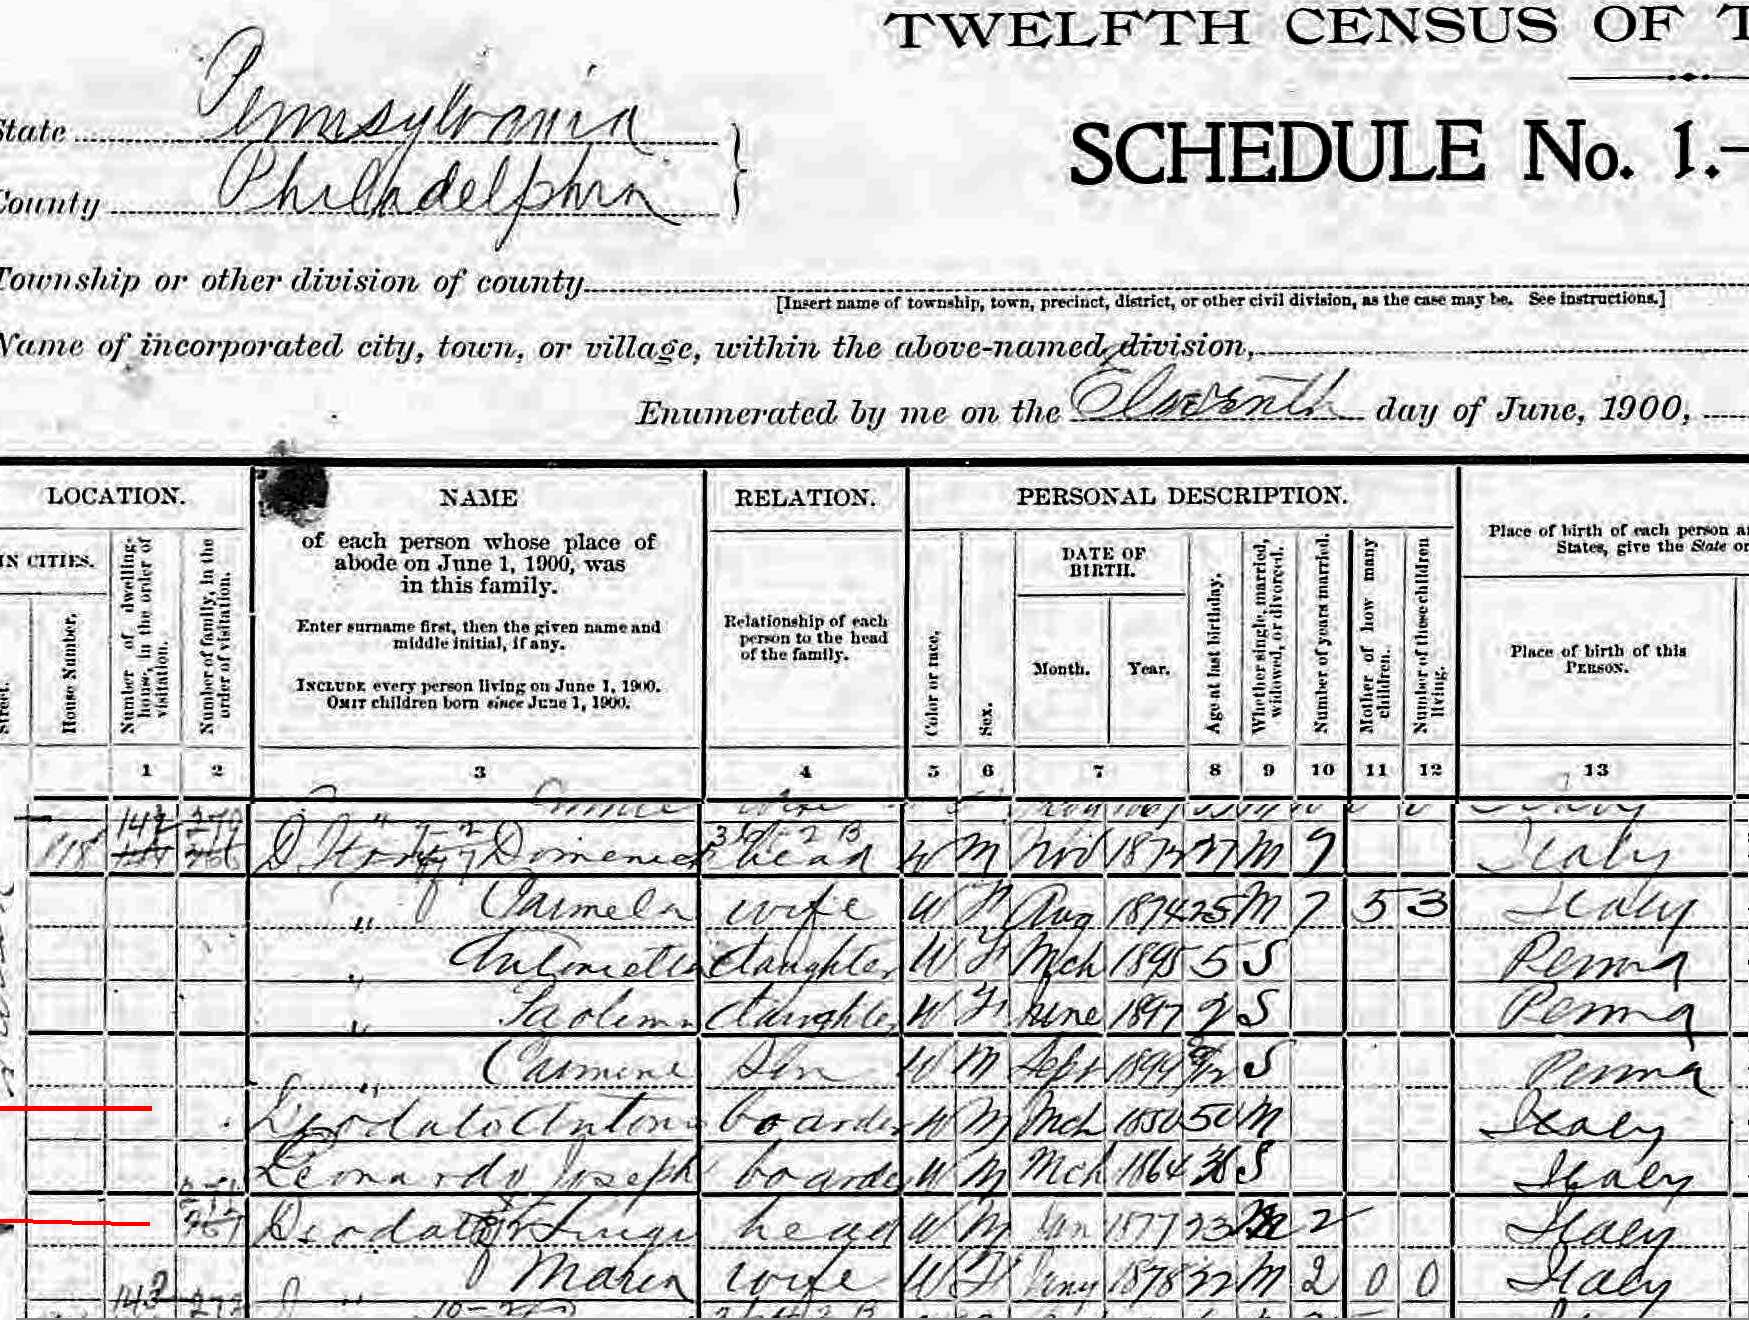 TWELFTH CENSUS OF T
State Pennsylvania
SCHEDULE No. 1.—
County Philadelphia
Township or other division of county
[Insert name of township, town, precinct, district, or other civil division, as the case may be. See instructions.]
Name of incorporated city, town, or village, within the above-named division,
Enumerated by me on the Eleventh day of June, 1900,
LOCATION. NAME RELATION. PERSONAL DESCRIPTION.
IN CITIES.
Street.
House Number.
Number of dwelling-house, in the order of visitation.
Number of family, in the order of visitation.
of each person whose place of
abode on June 1, 1900, was
in this family.
Enter surname first, then the given name and
middle initial, if any.
INCLUDE every person living on June 1, 1900.
OMIT children born since June 1, 1900.
Relationship of each
person to the head
of the family.
Color or race.
Sex.
DATE OF
BIRTH.
Month. Year.
Age at last birthday.
Whether single, married, widowed, or divorced.
Number of years married.
Mother of how many children.
Number of these children living.
Place of birth of each person a
States, give the State or
Place of birth of this
PERSON.
1 2 3 4 5 6 7 8 9 10 11 12 13
Domenico head W M Nov 187 27 M 7 Italy
" Carmela wife W F Aug 1874 25 M 7 5 3 Italy
" Antonietta daughter W F Mch 1895 5 S Penna
" daughter W F June 1897 2 S Penna
" Carmine Son W M Sept 1899 9/12 S Penna
Diodato Antonio boarder W M Mch 1850 50 M Italy
Leonardo Joseph boarder W M Mch 1864 36 S Italy
Diodato Luigi head W M Jan 1877 23 M 2 Italy
" Maria wife W F 1878 22 M 2 0 0 Italy
143 272